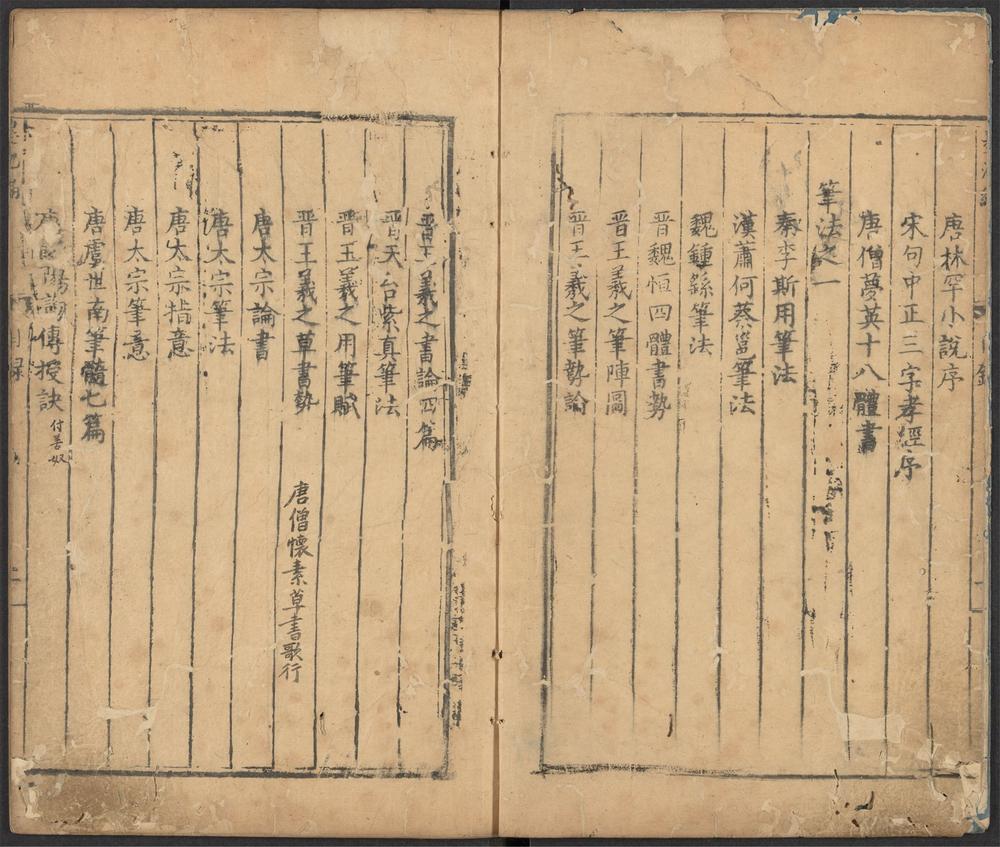 唐林罕小說序
宋句中正三字孝經序
唐僧夢英十八體書
筆法之一
秦李斯用筆法
漢蕭何蔡邕筆法
魏鍾繇筆法
晉魏恒四體書勢
晉王羲之筆陣圖
晉王羲之筆勢論
晉王羲之書論四篇
晉天台紫真筆法
晉王羲之用筆賦
晉王羲之草書勢
唐僧懷素草書歌行
唐太宗論書
唐太宗筆法
唐太宗指意
唐太宗筆意
唐虞世南筆髓七篇
陽詢傳授訣付善奴